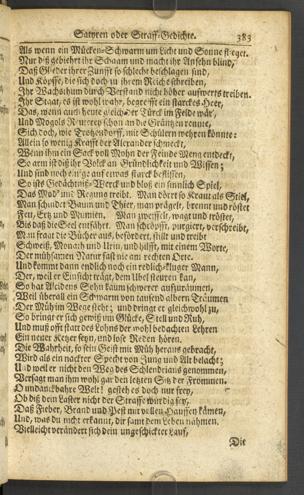 Satyren oder Straff-Gedichte. 383
Als wenn ein Mücken-Schwarm um Licht und Sonne fleger.
Nur diß gebiehrt ihr Schaam und macht ihr Ansehn blind,
Daß Glieder ihrer Zunfft so schlecht beschlagen sind,
Und Köpffe, die sich doch zu ihrem Reich schreiben,
Ihr Wachsthum durch Verstand nicht höher aufwerts treiben.
Ihr Staat, es ist wohl wahr, begreifft ein starckes Heer,
Das, wenn auch heute gleich der Türck im Felde wär,
Und Mogols schon an die Gräntzen rennte,
Sich doch, wie Trotzendorff, mit Schülern wehren könnte:
Allein so wenig Krafft der Alexander schmeckt,
Wenn ihm ein Sack voll Mohn der Feinde Meng entdeckt,
So arm ist diß ihr Volck an Gründlichkeit und Wissen;
Und sind noch einige auf etwas starck beflissen,
So ists Gedächtniß-Werck und bloß ein sinnlich Spiel,
Das Mod' und Neigung treibt. Man dörrt so Kraut als Stiel,
Man schindet Baum und Thier, man prägelt, brennt und röstet
Fett, Ertz und Mumien. Man zweiffelt, wagt und tröstet,
Biß daß die Seel entfährt. Man schröpfft, purgiert, verschreibt,
Man fraat die Bücher aus, befördert, stillt und treibt
Schweiß, Monath und Urin, und hilfft, mit einem Worte,
Der mühsamen Natur fast nie am rechten Orte.
Und kömmt dann endlich noch ein redlich-kluger Mann,
Der, weil er Einsicht trägt, dem Ubel steuren kan,
So hat Alcidens Sohn kaum schwerer aufzuräumen,
Weil überall ein Schwarm von tausend albern Träumen
Der Mühin Wege steht; und dringt er gleichwohl zu,
So bringt er sich gewiß um Glücke, Stell und Ruh,
Und muß offt statt des Lohns der wohl bedachten Lehren
Ein neuer Ketzer seyn, und lose Reden hören.
Die Wahrheit, so sein Geist mit Müh heraus gebracht,
Wird als ein nackter Specht von Jung und Alt belacht;
Und weil er nicht den Weg des Schlendrians genommen,
Versagt man ihm wohl gar den letzten Sitz der Frommen.
O undanckbahre Welt! gesteh es doch nur frey,
Ob diß dein Laster nicht der Straffe würdig sey,
Daß Fieber, Brand und Pest mit vollen Hauffen kämen,
Und, was du nicht erkannt, dir samt dem Leben nähmen.
Vielleicht verändert sich dein ungeschickter Lauf,
Die